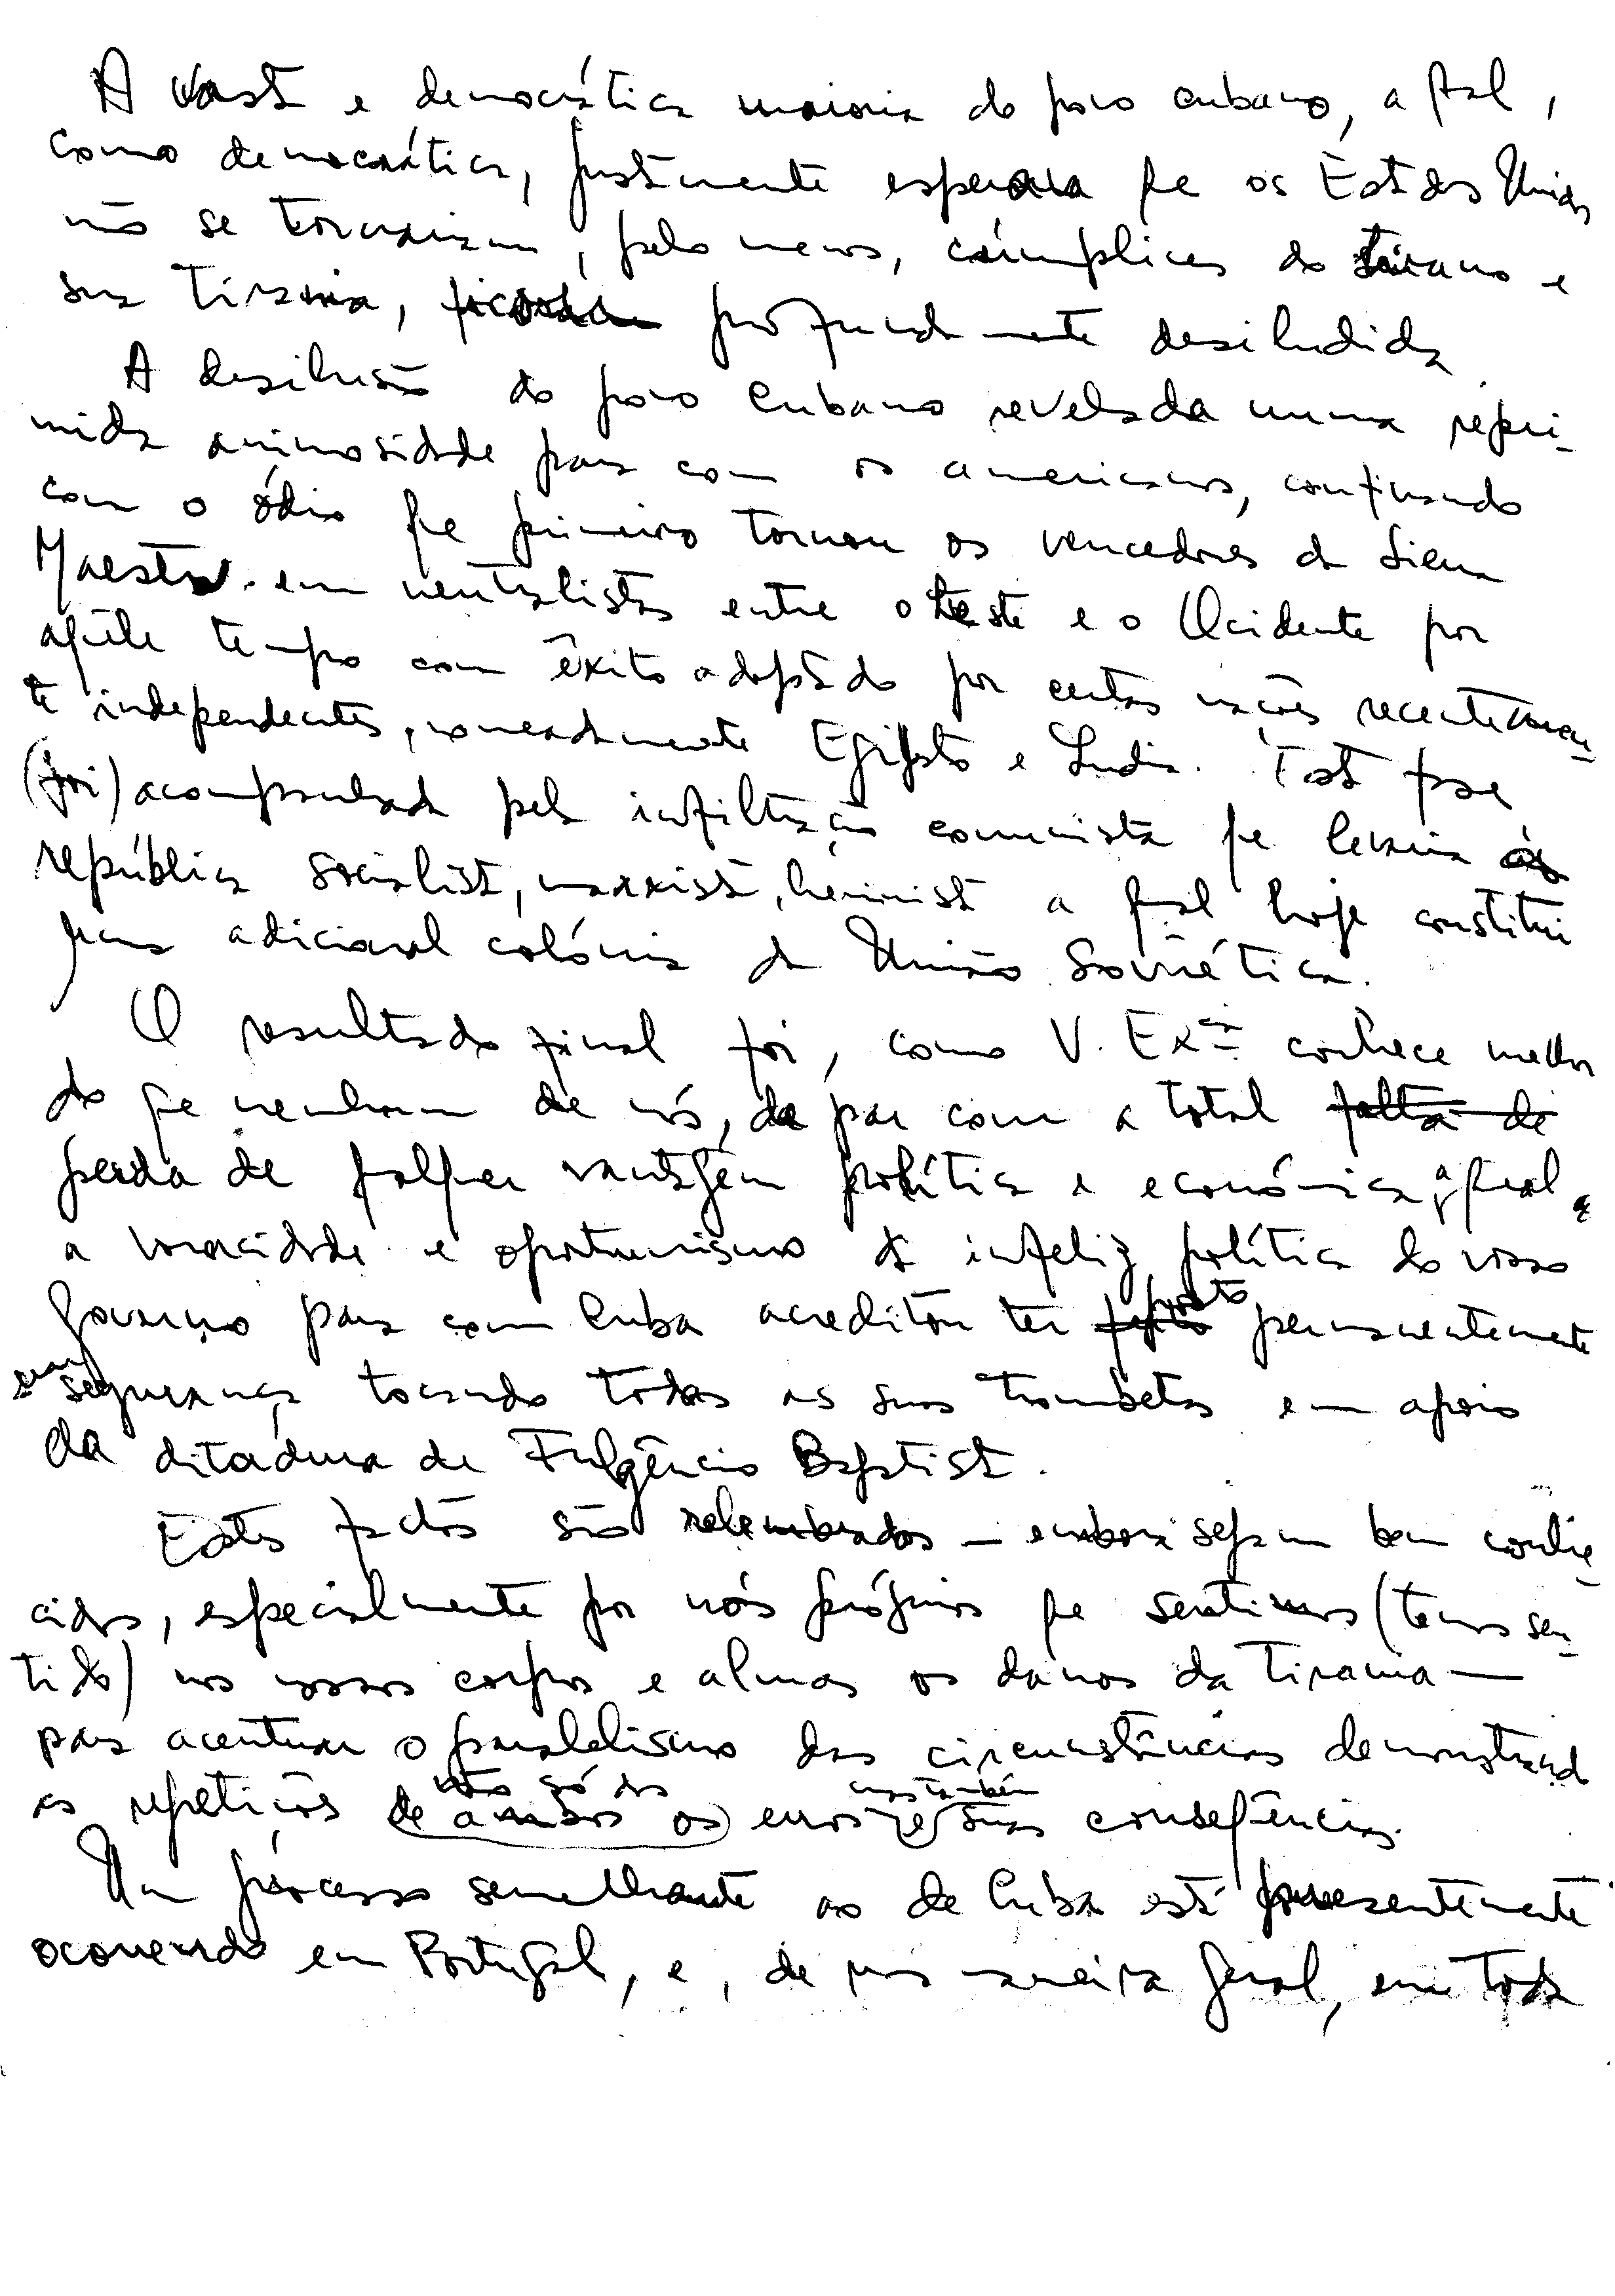 A vasta e democrática maioria do povo cubano, a qual,
como democrática, justamente esperava que os Estados Unidos
não se tornariam, pelo menos, cúmplices do tirano e
sua tirania, profundamente desiludida.
A desilusão do povo cubano revelada numa repri-
mida animosidade para com os americanos, continuando
com o ódio que primeiro tornou os vencedores da Sierra
Maestra em neutralistas entre o Leste e o Ocidente por
aquele tempo com êxito adoptado por certas nações recentemen-
te independentes, nomeadamente Egipto e India. Esta fase
(foi) acompanhada pela infiltração comunista que levaria às
república socialista, marxista, leninista a qual hoje constitui
uma adicional colónia da União Soviética.
O resultado final foi, como V. Exª conhece melhor
do que nenhum de nós, de par com a total falta de
perda de qualquer vantagem política e económica a qual
a voracidade e oportunismo da infeliz política do vosso
governo para com Cuba acreditou ter posto permanentemente
em segurança tocando todas as suas trombetas em apoio
da ditadura de Fulgêncio Baptista.
Estes factos são relembrados — embora sejam bem conhe-
cidos, especialmente por nós próprios que sentimos (temos sen-
tido) nos nossos corpos e almas os danos da tirania —
para acentuar o paralelismo das circunstâncias demonstrando
não só dos mas também
as repetições de ambos os erros e suas consequências.
Um processo semelhante ao de Cuba está presentemente
ocorrendo em Portugal, e, de uma maneira geral, em toda